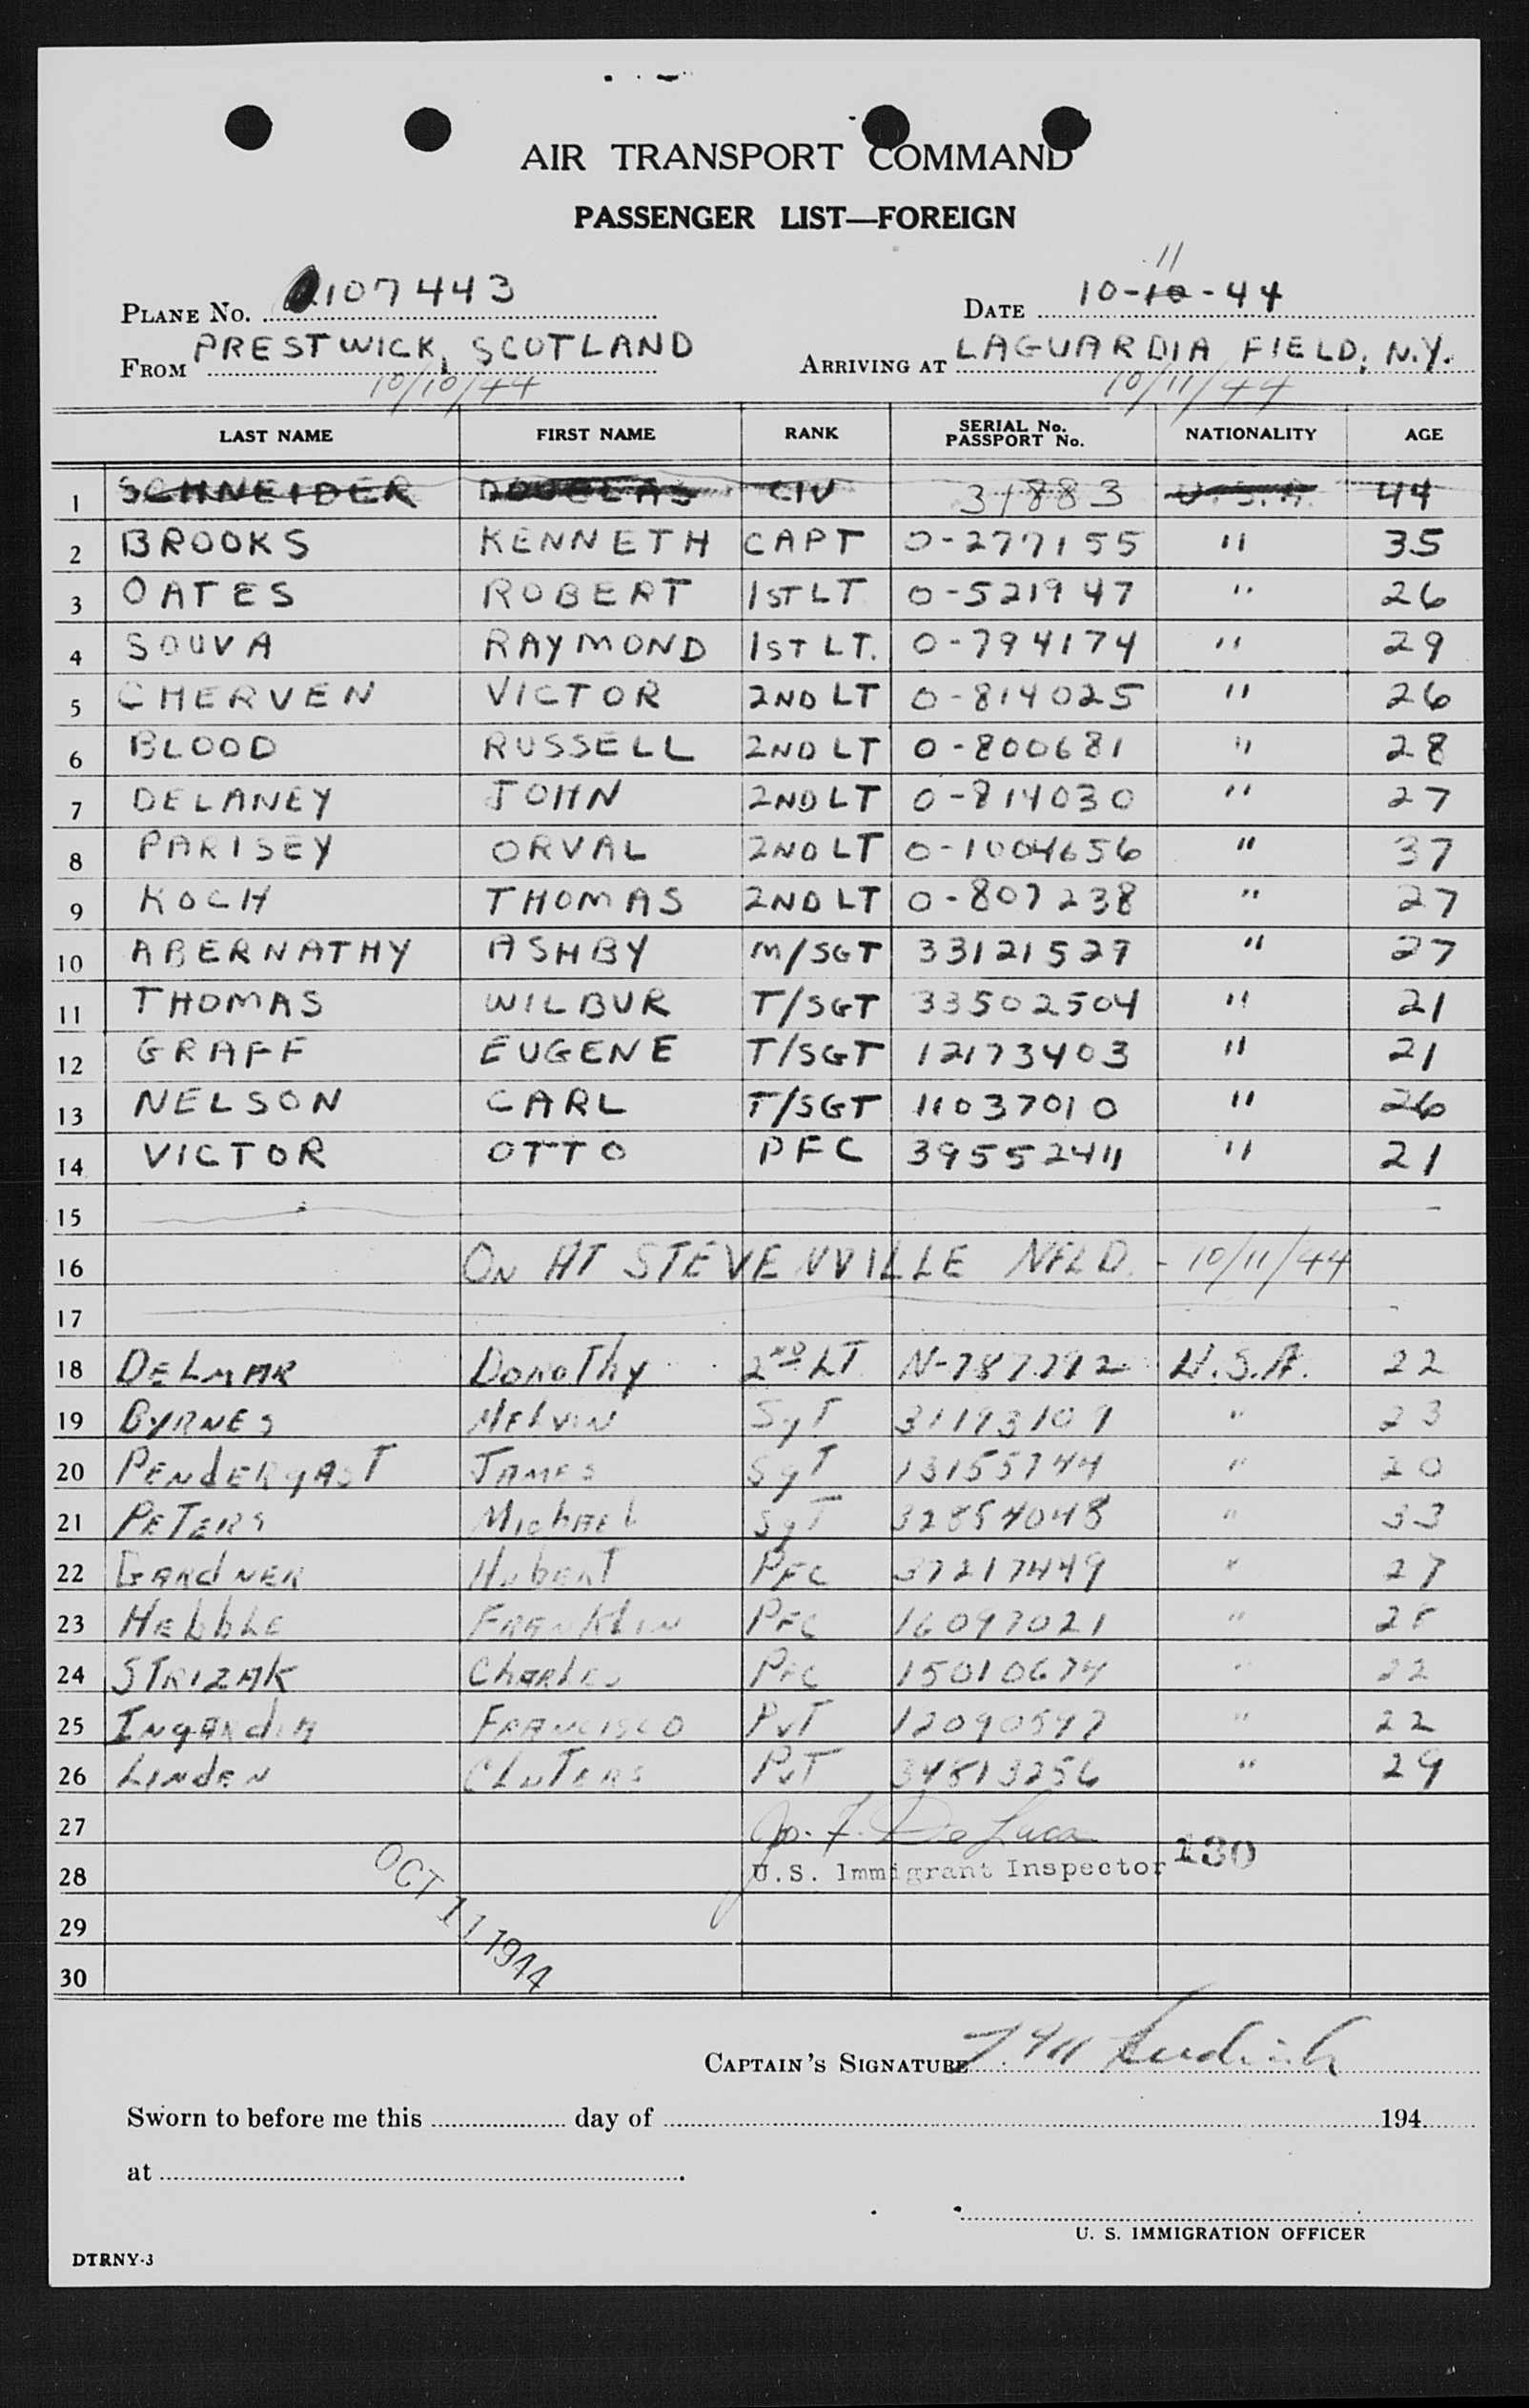 AIR TRANSPORT COMMAND
PASSENGER LIST—FOREIGN
11
PLANE No. 107443 DATE 10-10-44
FROM PRESTWICK, SCOTLAND ARRIVING AT LAGUARDIA FIELD, N.Y.
10/10/44 10/11/44
LAST NAME FIRST NAME RANK SERIAL No. PASSPORT No. NATIONALITY AGE
1 SCHNEIDER DOUGLAS CIV 31883 U.S.A. 44
2 BROOKS KENNETH CAPT 0-277155 " 35
3 OATES ROBERT 1ST LT 0-521947 " 26
4 SOUVA RAYMOND 1ST LT. 0-794174 " 29
5 CHERVEN VICTOR 2ND LT 0-814025 " 26
6 BLOOD RUSSELL 2ND LT 0-800681 " 28
7 DELANEY JOHN 2ND LT 0-814030 " 27
8 PARISEY ORVAL 2ND LT 0-1004656 " 37
9 KOCH THOMAS 2ND LT 0-807238 " 27
10 ABERNATHY ASHBY M/SGT 33121529 " 27
11 THOMAS WILBUR T/SGT 33502504 " 21
12 GRAFF EUGENE T/SGT 12173403 " 21
13 NELSON CARL T/SGT 11037010 " 26
14 VICTOR OTTO PFC 39552411 " 21
15
16 ON AT STEVENVILLE NFLD. - 10/11/44
17
18 DELMAR Dorothy 2ND LT N-787792 U.S.A. 22
19 BYRNES MELVIN SgT 31193109 " 23
20 PENdERgAST JAMES SgT 13155744 " 20
21 PETERS MIchAEL SgT 32854048 " 33
22 GARdNER HubERT PFC 37217449 " 27
23 HEbbLE FRANKLIN PFC 16097021 "
24 STRIZAK ChARLES PFC 15010674 " 22
25 INgARdIA FRANCISCO PvT 12090597 " 22
26 LINdEN PvT 34813256 " 29
27 Jo. F. De Luca
28 U.S. Immigrant Inspector 130
29 OCT 11 1944
30
CAPTAIN'S SIGNATURE
Sworn to before me this day of 194
at
U. S. IMMIGRATION OFFICER
DTRNY-3